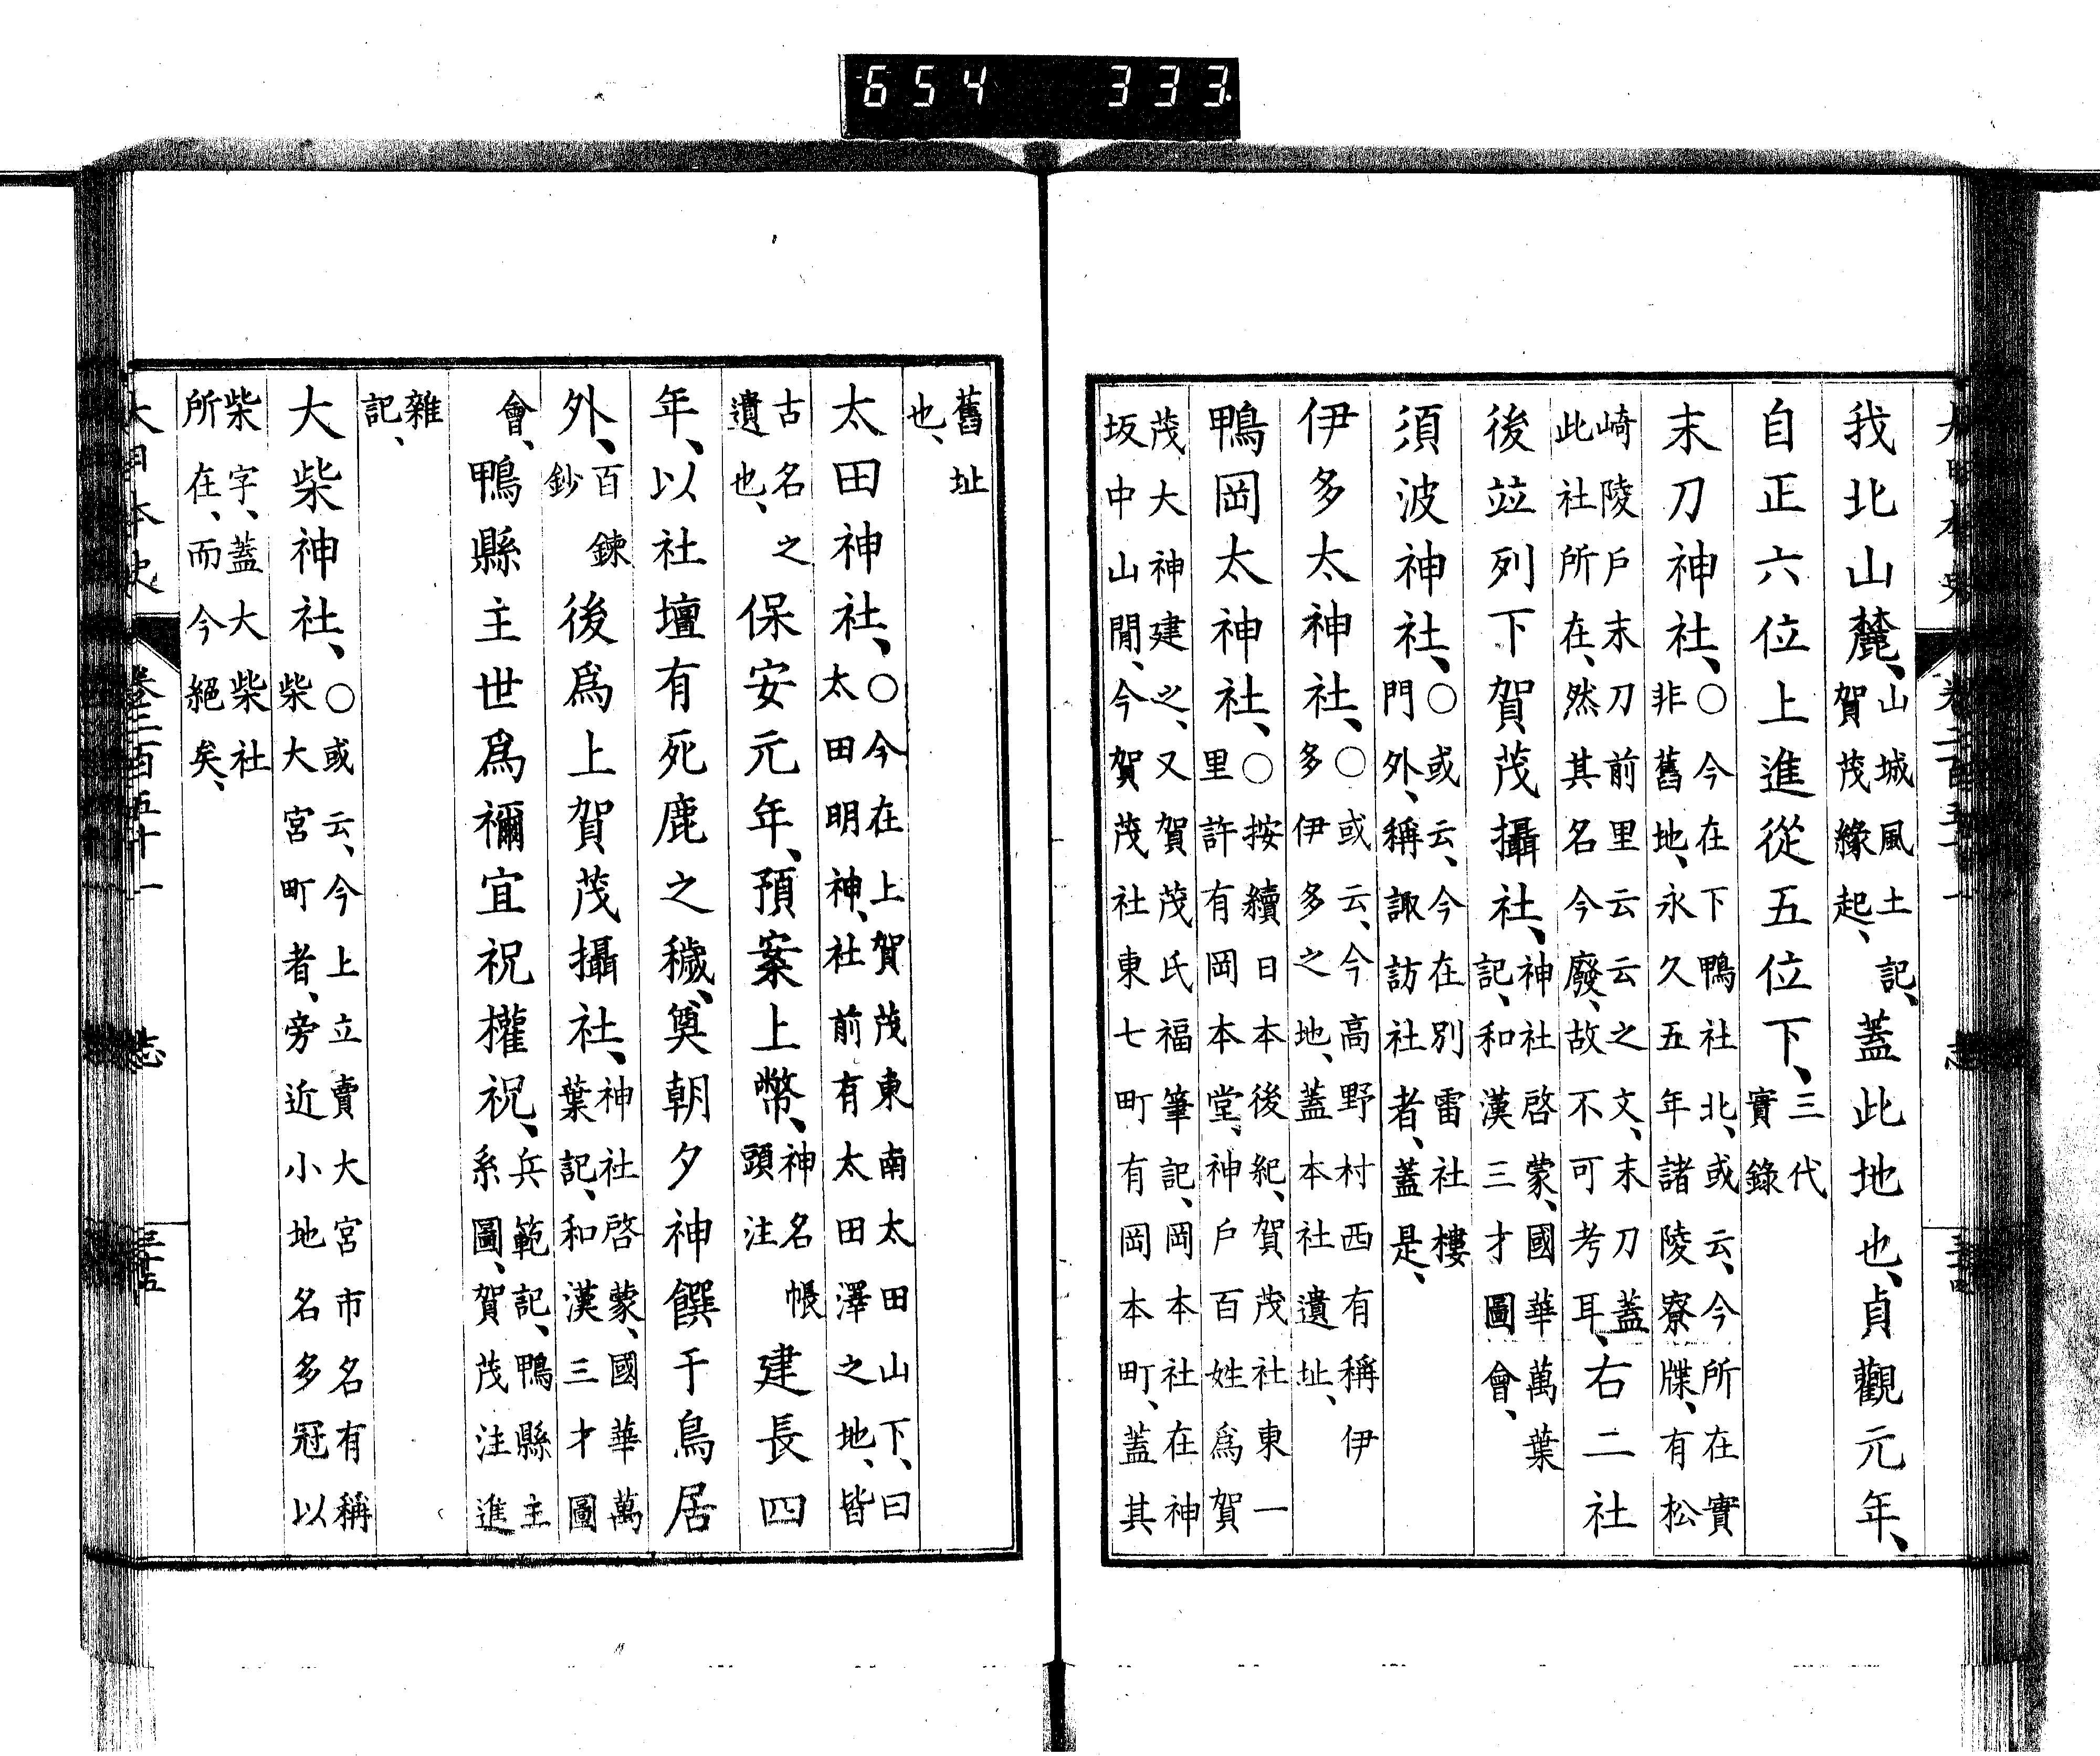 654 333
我北山麓、山城風土記、賀茂緣起、蓋此地也、貞觀元年、
自正六位上進從五位下、三代實錄
末刀神社、○今在下鴨社北、或云、今所在實非舊地、永久五年諸陵寮牒、有松
崎陵戶末刀前里云云之文、末刀蓋此社所在、然其名今廢、故不可考耳、右二社
後竝列下賀茂攝社、神社啓蒙、國華萬葉記、和漢三才圖會、
須波神社、○或云、今在別雷社樓門外、稱諏訪社者、蓋是、
伊多太神社、○或云、今高野村西有稱伊多伊多之地、蓋本社遺址、
鴨岡太神社、○按續日本後紀、賀茂社東一里許有岡本堂、神戶百姓爲賀
茂大神建之、又賀茂氏福筆記、岡本社在神坂中山閒、今賀茂社東七町有岡本町、蓋其
舊址也、
太田神社、○今在上賀茂東南太田山下、曰太田明神、社前有太田澤之地、皆
古名之遺也、保安元年、預案上幣、神名帳頭注建長四
年、以社壇有死鹿之穢、奠朝夕神饌于鳥居
外、百鍊鈔後爲上賀茂攝社、神社啓蒙、國華萬葉記、和漢三才圖
會、鴨縣主世爲禰宜祝權祝、兵範記、鴨縣主系圖、賀茂注進
雜記、
大柴神社、○或云、今上立賣大宮市名有稱柴大宮町者、旁近小地名多冠以
柴字、蓋大柴社所在、而今絕矣、
大日本史 卷二百五十一 志 三十五